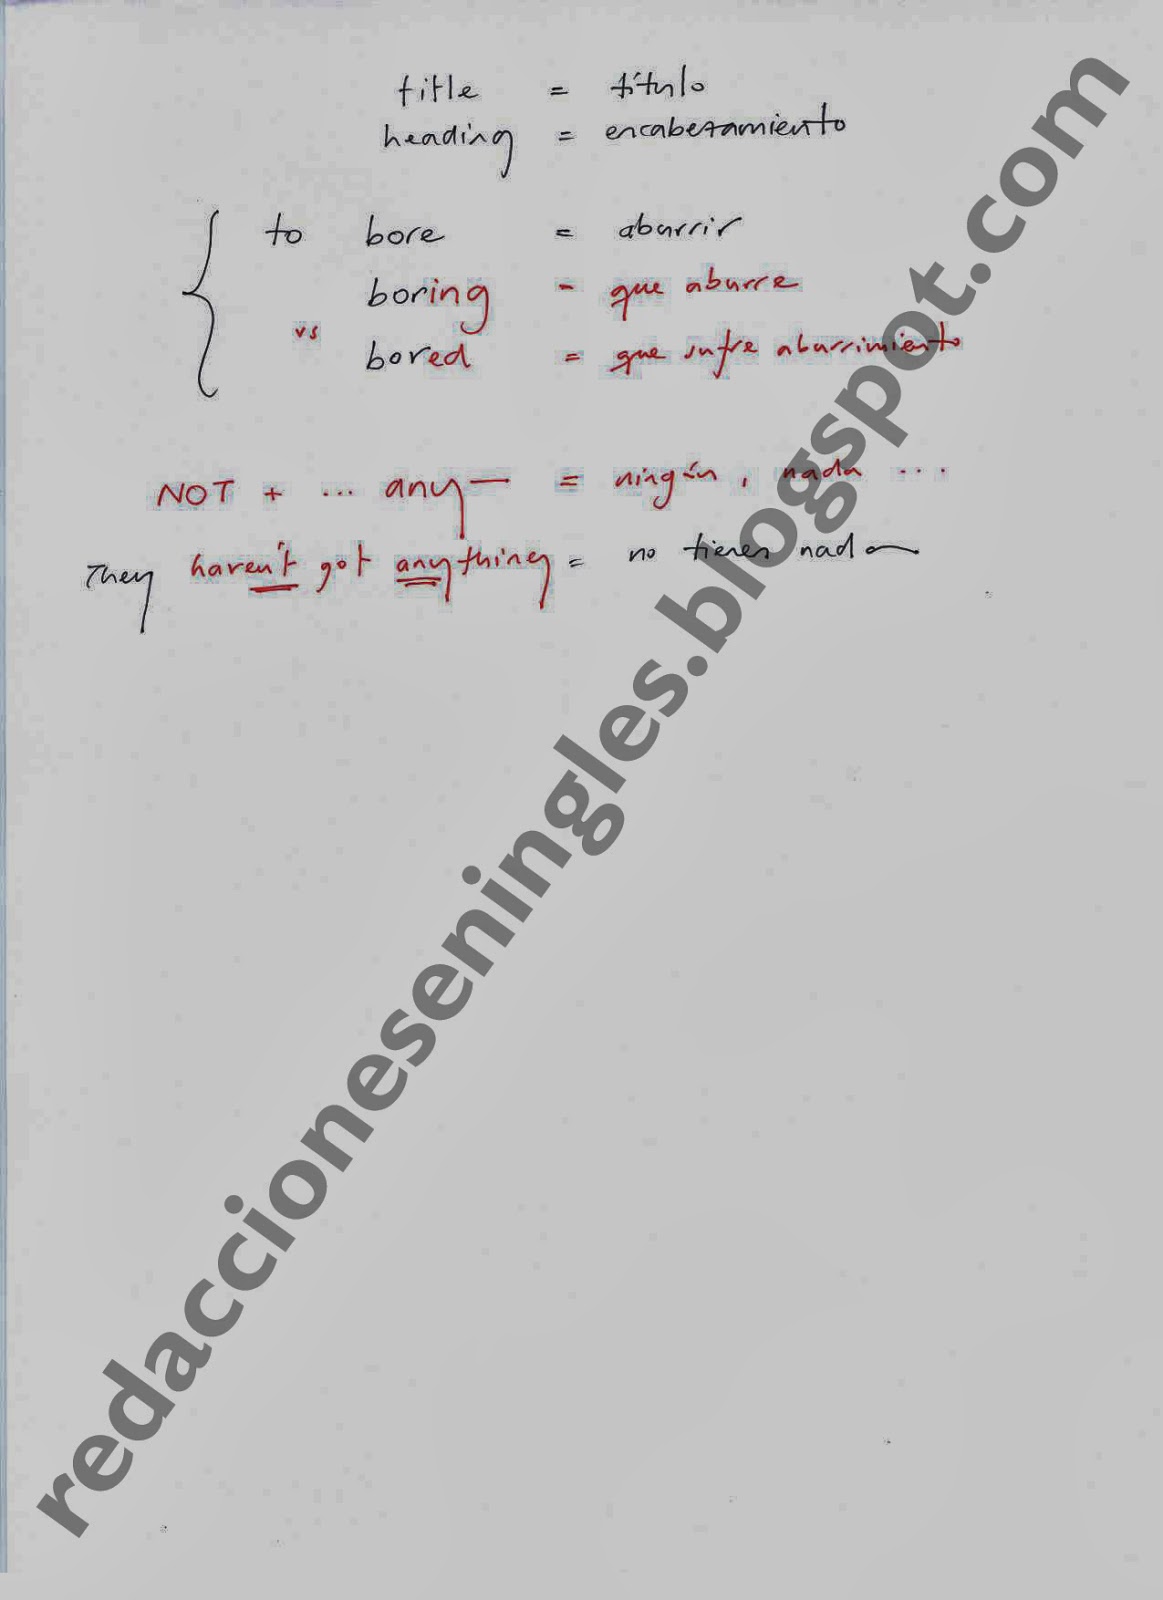 title = título
heading = encabezamiento
to bore = aburrir
boring = que aburre
vs
bored = que sufre aburrimiento
NOT + ... any— = ningún, nada ...
They haven't got anything = no tienen nada
redaccioneseningles.blogspot.com